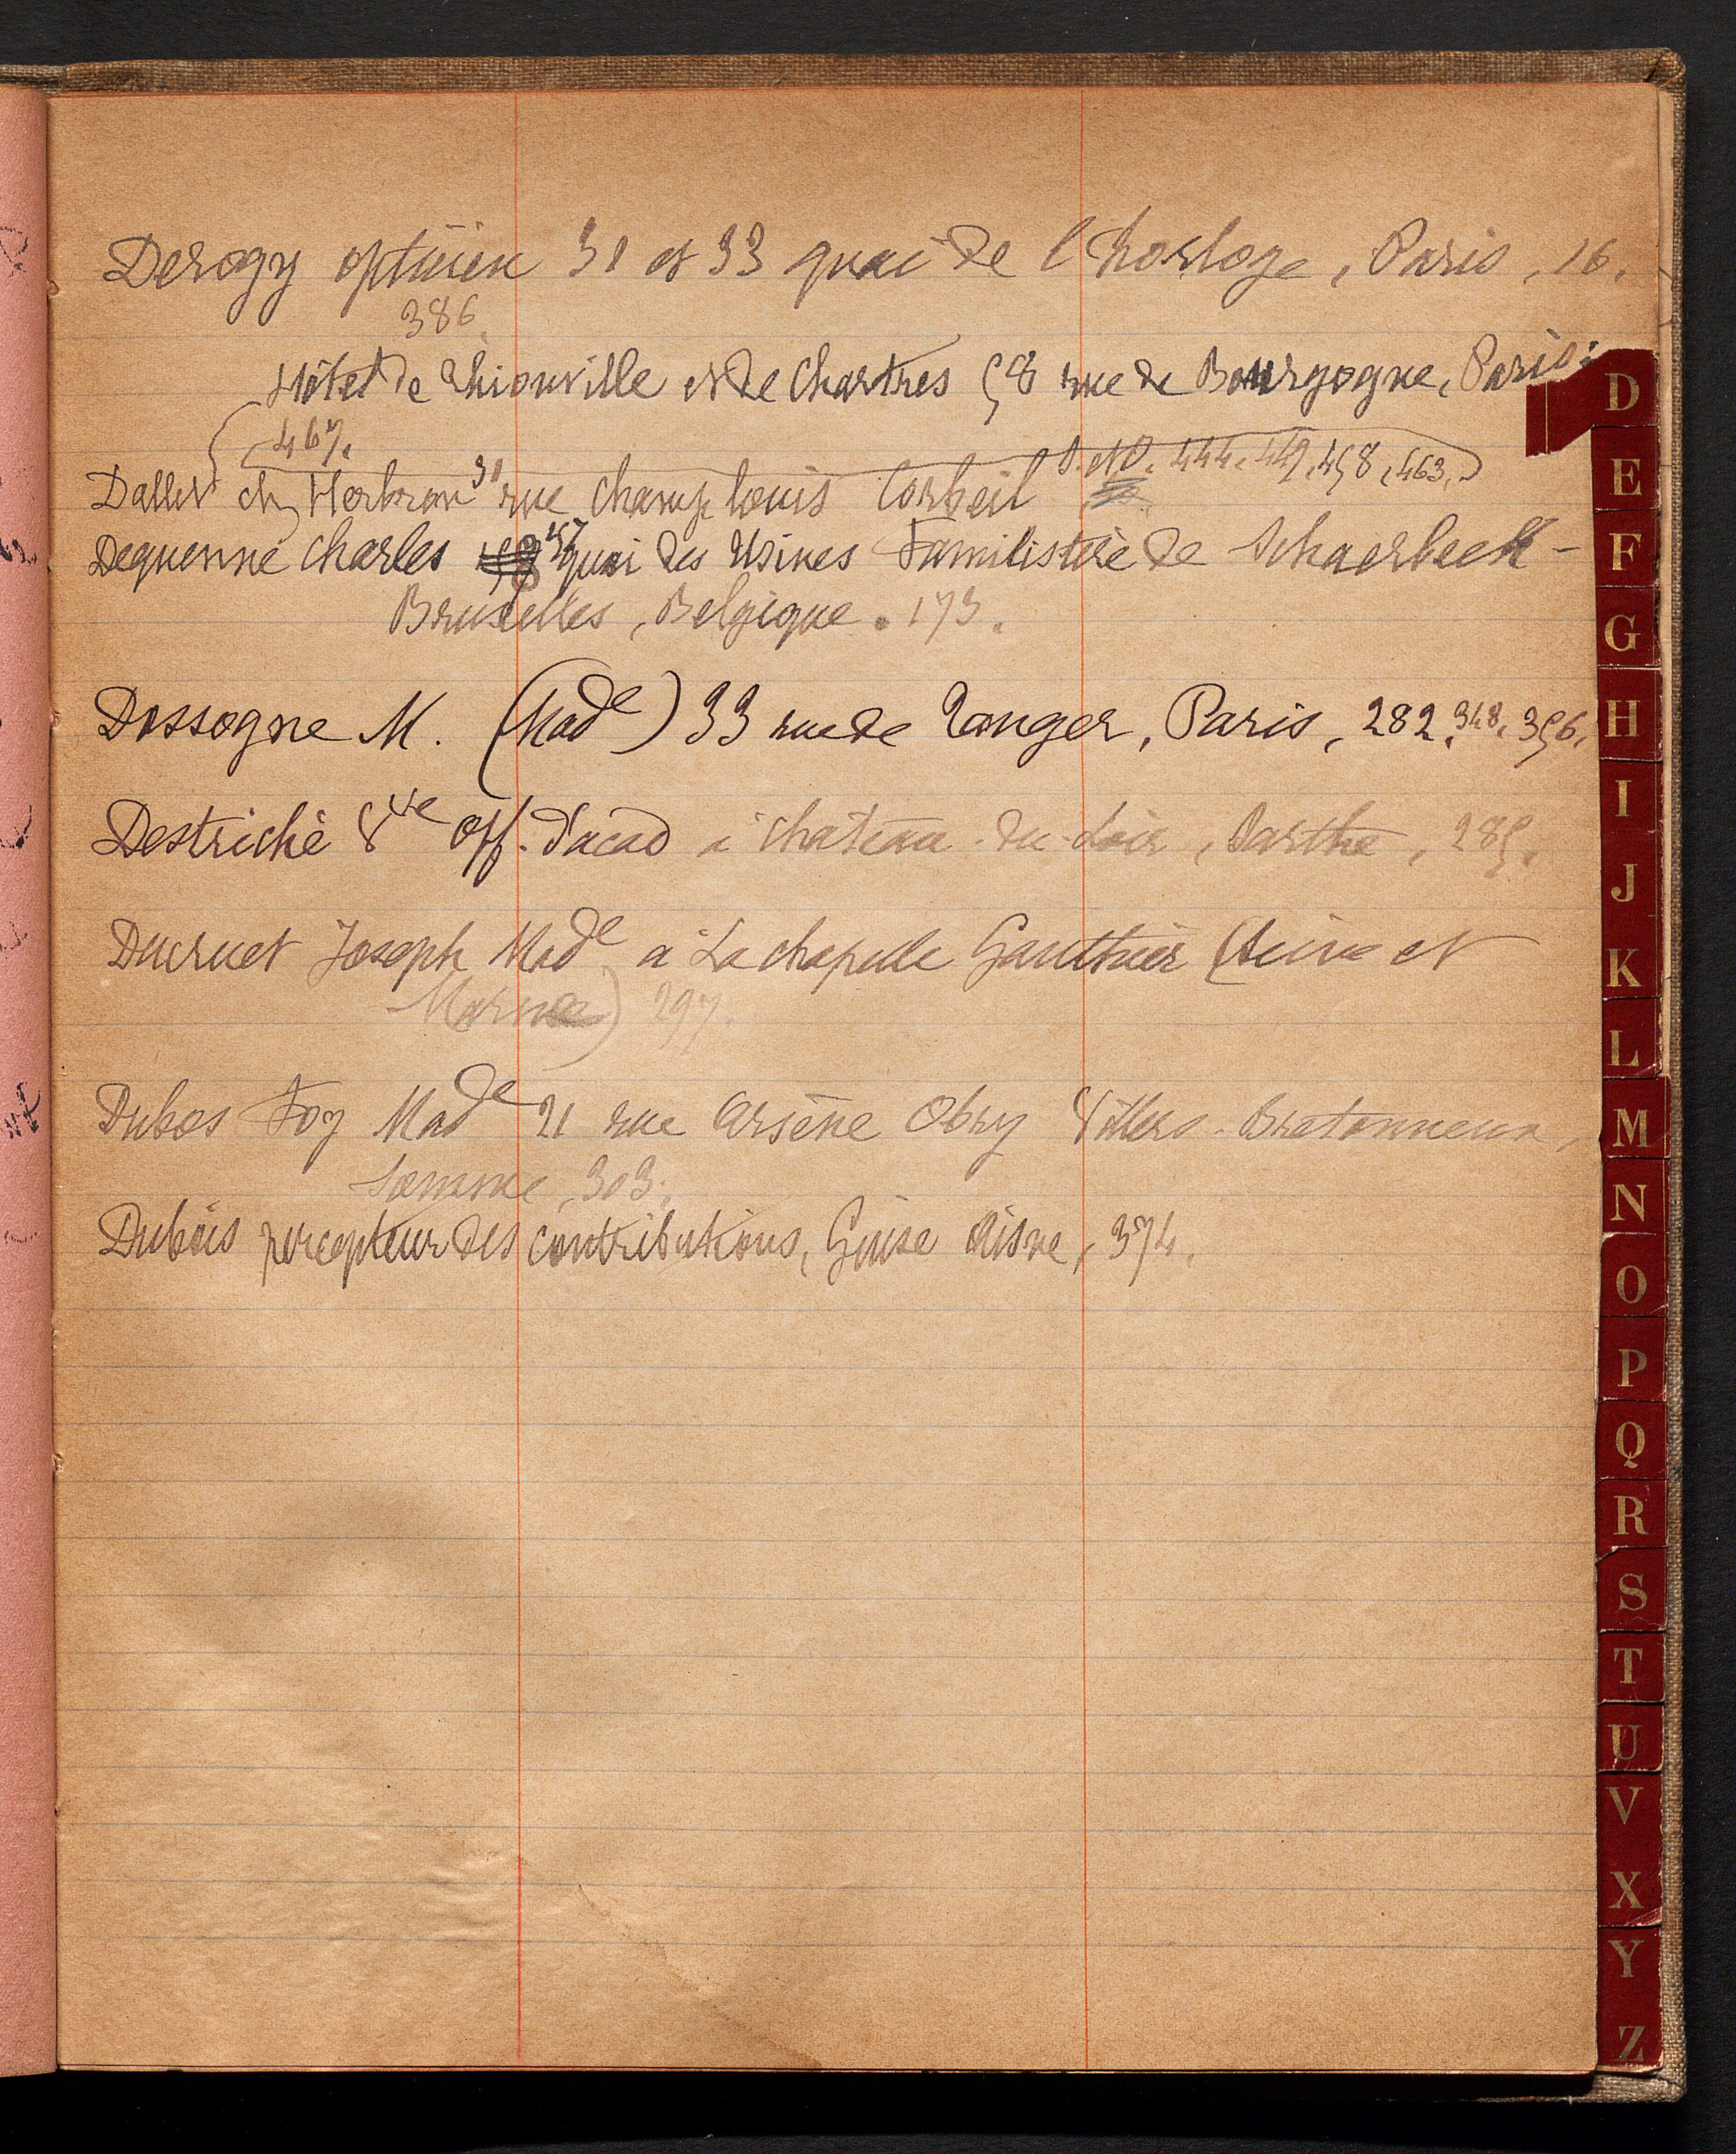 Derogy opticien 31 et 33 quai de l'horloge, Paris, 16.
386.
Hôtel de Thionville et de Chartres 58 rue de Bourgogne, Paris:
467. 444. 449, 458, 463.
Dallet ch 31 rue Champlouis Corbeil
Dequenne Charles 157 quai des Usines Familistère de Schaerbeek-
Bruxelles, Belgique. 173.
Dossogne M. (Made) 33 rue de Tanger, Paris, 282. 348. 356.
Destriché Vve off. d'acad à Chateau-du-Loir, Sarthe, 285.
Ducruet Joseph Made à La chapelle Gauthier (Seine et
Marne) 297.
Dubos Foy Made 21 rue Arsène Obry Villers-Bretonneux,
Somme, 303.
Dubois percepteur des contributions, Guise Aisne, 374.
D
E
F
G
H
I
J
K
L
M
N
O
P
Q
R
S
T
U
V
X
Y
Z